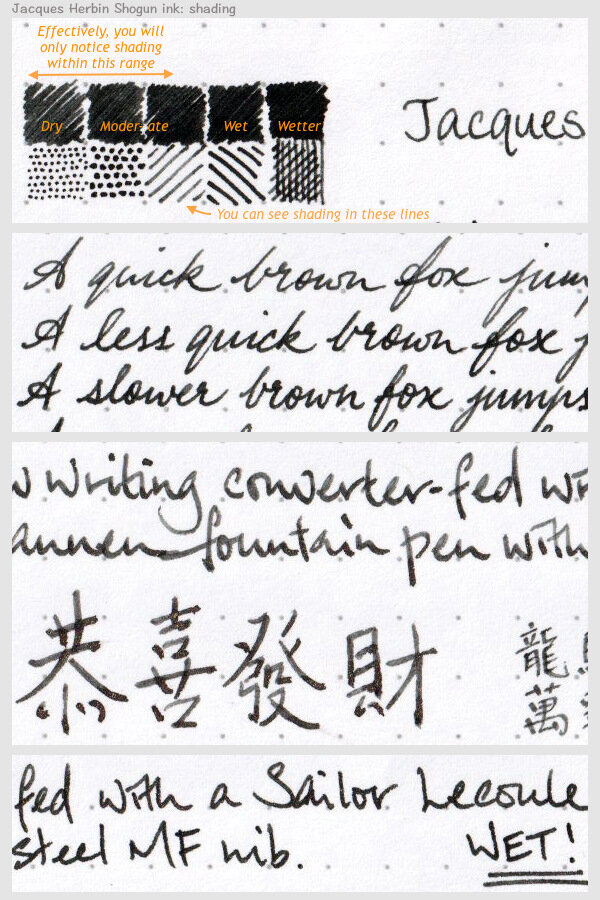 Jacques Herbin Shogun ink: shading
Effectively, you will
only notice shading
within this range
Dry Moderate Wet Wetter
Jacques
You can see shading in these lines
A quick brown fox jum
A less quick brown fox j
A slower brown fox jumps
w writing converter-fed wi
annen fountain pen with
恭喜發財
龍
萬
fed with a Sailor Lecoule
steel MF nib.
WET!